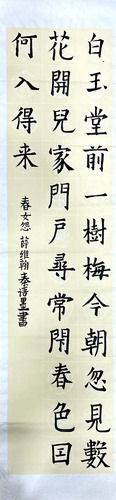 白玉堂前一樹梅今朝忽見數
花開兒家門戶尋常閉春色囙
何入得来
春女怨 薛維翰 墨書